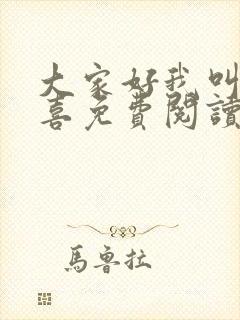 大家好我叫
喜免費閱讀
馬魯拉